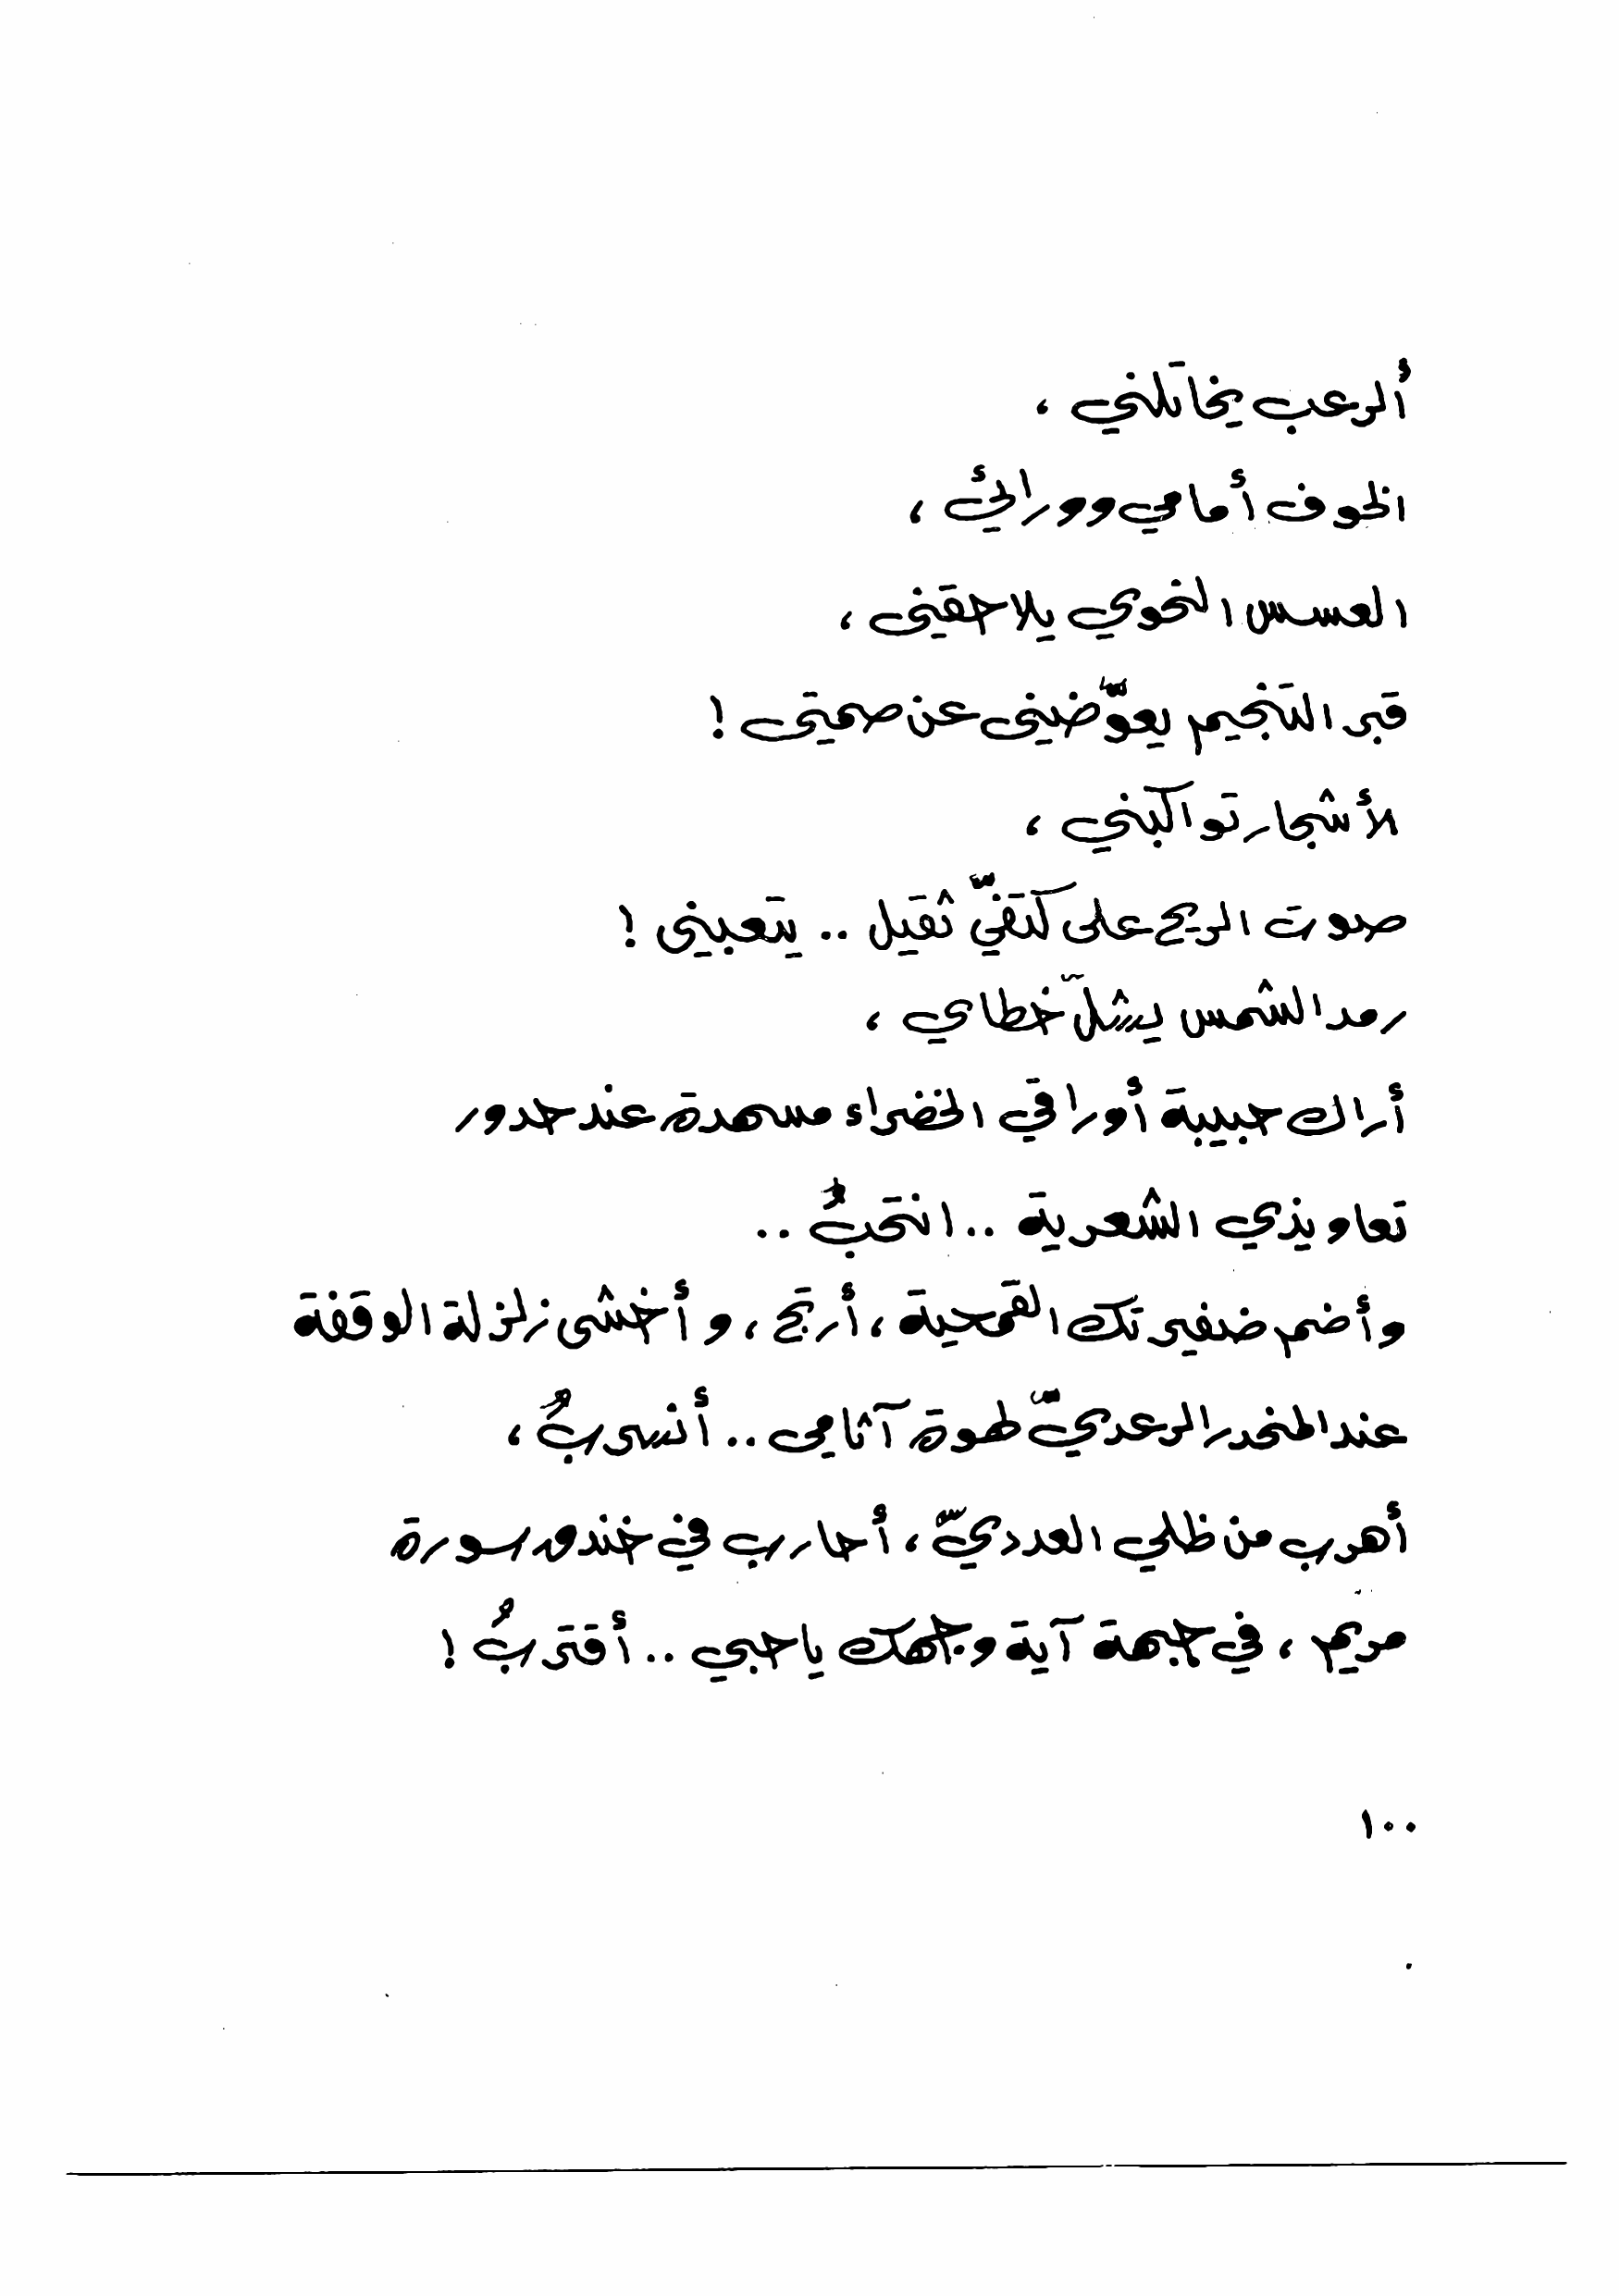 ألرعب يخاتلني ،
الخوف أمامي وورائي ،
العسس النحوي يلاحقني ،
قبر التنجيم يعوّضني عن صمتي !
الأشجار تواكبني ،
صوت الريح على كتفيّ ثقيل .. يتعبني !
رمد الشمس يشلّ خطاي ،
أراك حبيبة أوراقي الخضراء مسهدة عند حدور
تعاويذي الشعرية .. انتحبُ ..
وأضم ضفيرتك القمحية ، أرتج ، وأخشى زلزلة الوقفة
عند المنحدر الرعديّ لهوة آثامي .. أنسربُ ،
أهرب من ظلي العدديّ ، أحارب في خندق سورة
مريم ، في جبهة آية وجهك يا حبي .. أقتربُ !
١٠٠